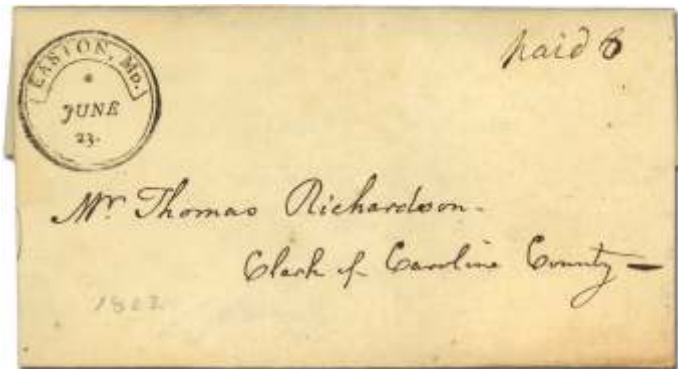 EASTON, MD.
*
JUNE
23.
paid 6
Mr Thomas Richardson.
Clerk of Caroline County —
1802